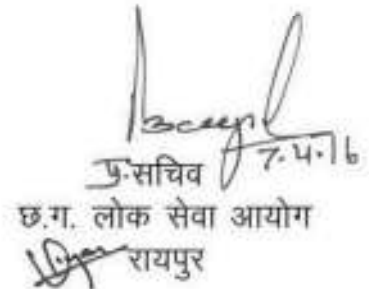 7.4.16
प्र.सचिव
छ.ग. लोक सेवा आयोग
रायपुर